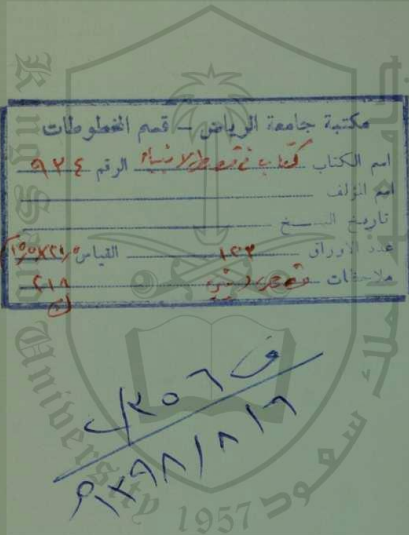 مكتبة جامعة الرياض - قسم المخطوطات
اسم الكتاب كتاب في قصص الانبياء الرقم ٩٢٤
اسم المؤلف
تاريخ النسخ
عدد الأوراق ١٢٣ القياس
ملاحظات قصص ديني
٢١٨
ف ٣٥٦
١٣٩٨/٨/١٦
King Saud University
جامعة الملك سعود
1957